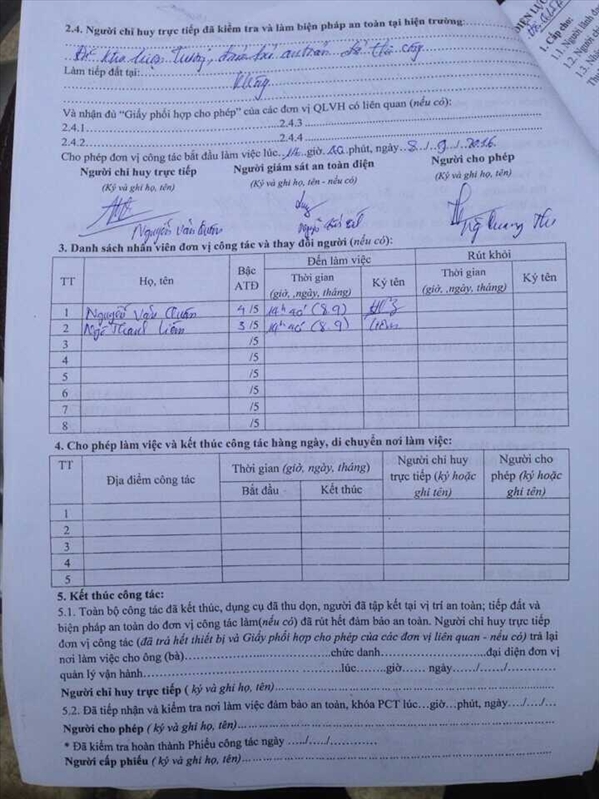 2.4. Người chỉ huy trực tiếp đã kiểm tra và làm biện pháp an toàn tại hiện trường:
an toàn thi công
Làm tiếp đất tại:
Không
Và nhận đủ “Giấy phối hợp cho phép” của các đơn vị QLVH có liên quan (nếu có):
2.4.1 2.4.3
2.4.2 2.4.4
Cho phép đơn vị công tác bắt đầu làm việc lúc 14 giờ 40 phút, ngày 8 / 9 / 2016
Người chỉ huy trực tiếp Người giám sát an toàn điện Người cho phép
(Ký và ghi họ, tên) (Ký và ghi họ, tên - nếu có) (Ký và ghi họ, tên)
Nguyễn Văn Quang
3. Danh sách nhân viên đơn vị công tác và thay đổi người (nếu có):
TT Họ, tên Bậc ATĐ Đến làm việc Rút khỏi
Thời gian (giờ, ,ngày, tháng) Ký tên Thời gian (giờ, ,ngày, tháng) Ký tên
1 Nguyễn Văn 4 /5 14h 40' (8.9)
2 Ngô Thanh Liêm 3 /5 14h 40' (8.9) Liêm
3 /5
4 /5
5 /5
6 /5
7 /5
8 /5
4. Cho phép làm việc và kết thúc công tác hàng ngày, di chuyển nơi làm việc:
TT Địa điểm công tác Thời gian (giờ, ngày, tháng) Người chỉ huy trực tiếp (ký hoặc ghi tên) Người cho phép (ký hoặc ghi tên)
Bắt đầu Kết thúc
1
2
3
4
5
5. Kết thúc công tác:
5.1. Toàn bộ công tác đã kết thúc, dụng cụ đã thu dọn, người đã tập kết tại vị trí an toàn; tiếp đất và
biện pháp an toàn do đơn vị công tác làm(nếu có) đã rút hết đảm bảo an toàn. Người chỉ huy trực tiếp
đơn vị công tác (đã trả hết thiết bị và Giấy phối hợp cho phép của các đơn vị liên quan - nếu có) trả lại
nơi làm việc cho ông (bà)……………chức danh……………đại diện đơn vị
quản lý vận hành……………lúc……giờ…… ngày……/……/……
Người chỉ huy trực tiếp ( ký và ghi họ, tên)……………
5.2. Đã tiếp nhận và kiểm tra nơi làm việc đảm bảo an toàn, khóa PCT lúc…giờ…phút, ngày…./…./…
Người cho phép ( ký và ghi họ, tên)……………
* Đã kiểm tra hoàn thành Phiếu công tác ngày …./…./…………
Người cấp phiếu ( ký và ghi họ, tên)……………
1. Cấp cho: